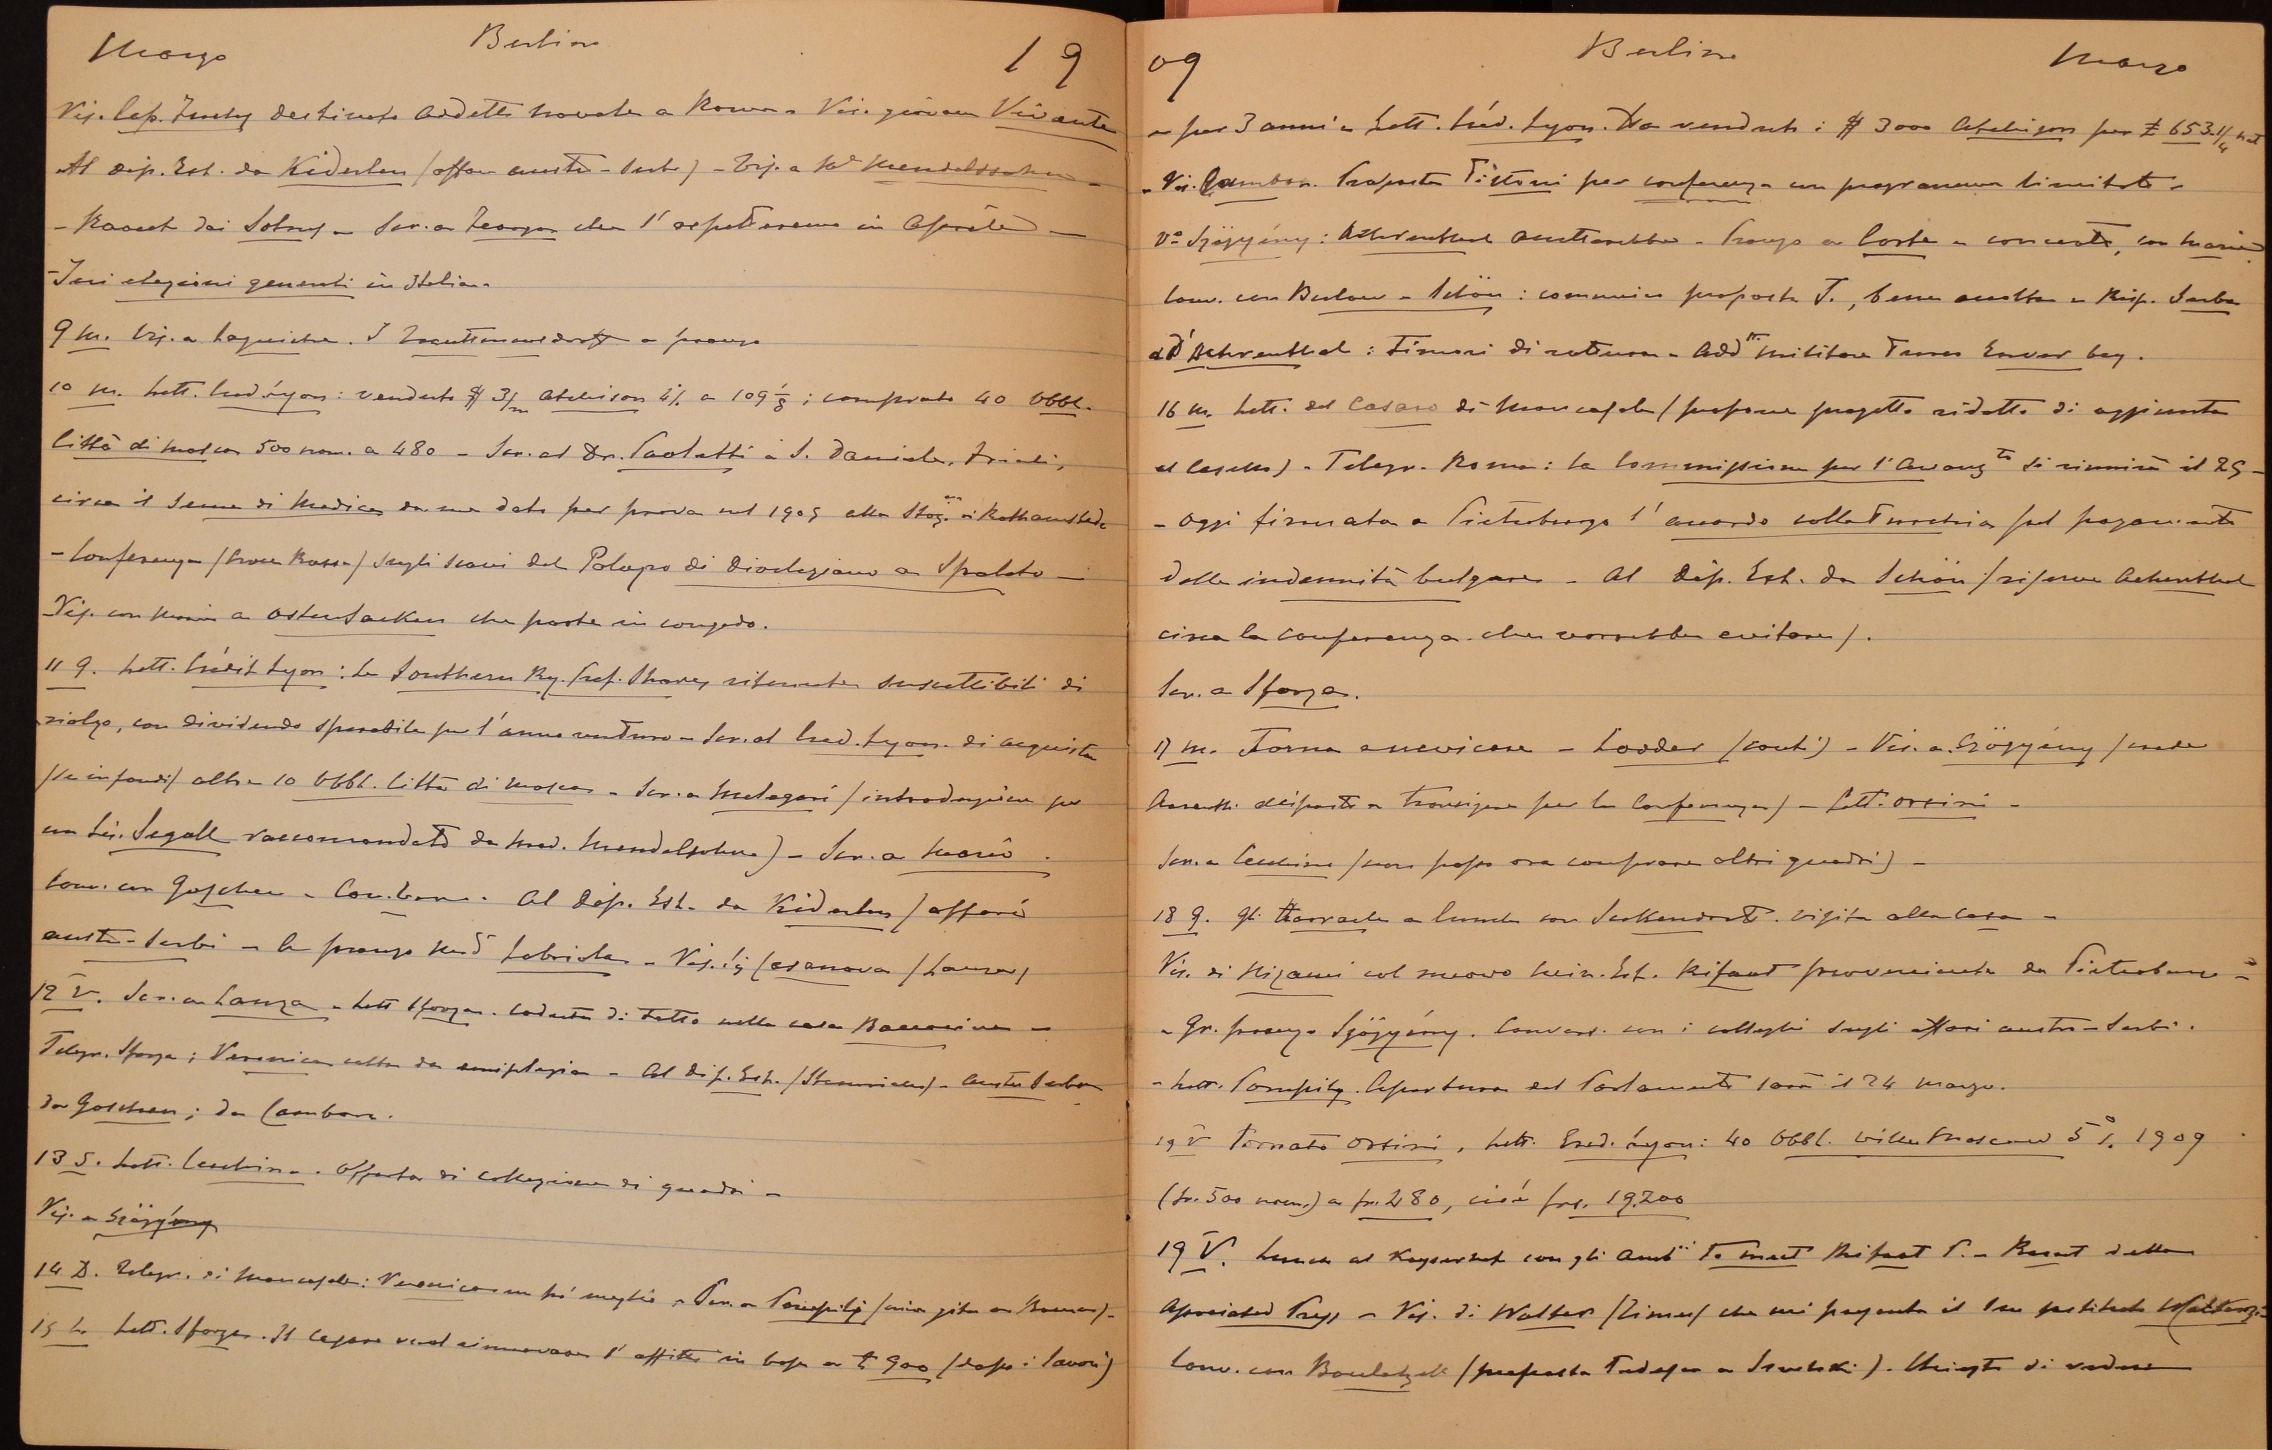 Marzo Berlino 19
Vis. Cap. destinato addetto navale a Roma - Vis. giovan Vivante
Al dip. Est. da Kiderlen (affari austro-serbi) - Vis. a Mendelssohn -
- Ricevt. dai - Scr. a che l'aspetteremo in Aprile -
- Ieri elezioni generali in Italia -
9 M. Vis. a Laguiche. I Trauttmansdorff a pranzo
10 M. Lett. Cred. Lyon: venduto $ 3/m Atchison 4% a 109 1/8; comprato 40 Obbl.
Città di Mosca 500 nom. a 480 - Scr. al Dr. Paoletti a S. Daniele, Friuli,
circa il seme di Medica da me dato per prova nel 1905 alla Staz.ne di Rothamstede
- Conferenza (Croce Rossa) sugli scavi del Palazzo di Diocleziano a Spalato -
- Vis. con Maria a Osten Sacken che parte in congedo.
11 G. Lett. Crédit Lyon: le Southern Ry. Pref. Shares ritenute suscettibili di
rialzo, con dividendo sperabile per l'anno venturo - Scr. al Cred. Lyon. di acquistare
(se in fondi) altre 10 Obbl. Città di Mosca - Scr. a Melegari (introduzione per
un Sig. Segall raccomandato da Mad. Mendelsohn) - Scr. a Mario.
Conv. con Goschen - Cambon. Al Dip. Est. da Kiderlen (affari
austro-serbi - a pranzo Labriola - Vis. Casanova (Lanza)
12 V. Scr. a Lanza - Lett. Sforza. Caduta di tetto nella casa -
Telegr. Sforza: Veronica colta da emiplegia - Al dip. Est. (Stemrich) - austro serbo
da Goschen; da Cambon.
13 S. Lett. Cecchini. Offerta di collezione di quadri -
Vis. a Szögyény
14 D. Telegr. di Moncasale: Veronica un po' meglio - Scr. a Pompilj (mia gita a Roma) -
15 L. Lett. Sforza. Il Casaro vuol rinnovare l'affitto in base a £ 900 (dopo i lavori)
09 Berlino Marzo
- per 3 anni - Lett. Créd. Lyon. Ha venduto i $ 3000 Atchison per £ 653.11/4
- Vis. Cambon. Proposta Tittoni per conferenza con programma limitato -
Vo Szögyény: Aehrenthal accetterebbe - Pranzo a Corte e concerto, con Maria
Conv. con Bulow - Schön: comunico proposta T., bene accolta - Risp. Serba
ad Aehrenthal: timori di rottura - Add.to militare Turco Enver bey.
16 M. Lett. del Casaro di Moncasale (propone progetto ridotto di aggiunta
al casello) - Telegr. Roma: la Commissione per l'Avanz.to si riunirà il 25 -
- Oggi firmata a Pietroburgo l'accordo colla Turchia pel pagamento
della indennità bulgara - Al Dip. Est. da Schön (riserve Aehrenthal
circa la conferenza che vorrebbe evitare).
Scr. a Sforza.
17 M. Torna a nevicare - Looder (conti) - Vis. a Szögyény (crede
Aerenth. disposto a transigere per la Conferenza) - Lett. Orsini -
Scr. a Cecchini (non posso ora comprare altri quadri) -
18 G. Gli Harrach a lunch con Seckendorff. Visita alla Casa -
Vis. di Nizami col nuovo Min. Est. Rifaat proveniente da Pietroburgo -
- Gr. pranzo Szögyény. Convers. con i colleghi sugli affari austro-serbi.
- Lett. Pompilj. Apertura del Parlamento sarà il 24 marzo.
19 V Tornato Orsini, Lett. Cred. Lyon: 40 Obbl. Ville Moscow 5% 1909
(fr. 500 nom.) a fr. 480, cioè frs. 19.200
19 V. Lunch al Kaiserhof con gli Amb.ri Rifaat P. - Recat. della
Associated Press - Vis. di Walter (Times) che mi presenta il suo
Conv. con (proposta Tedesca a Iswolski). Chiesto di vedere